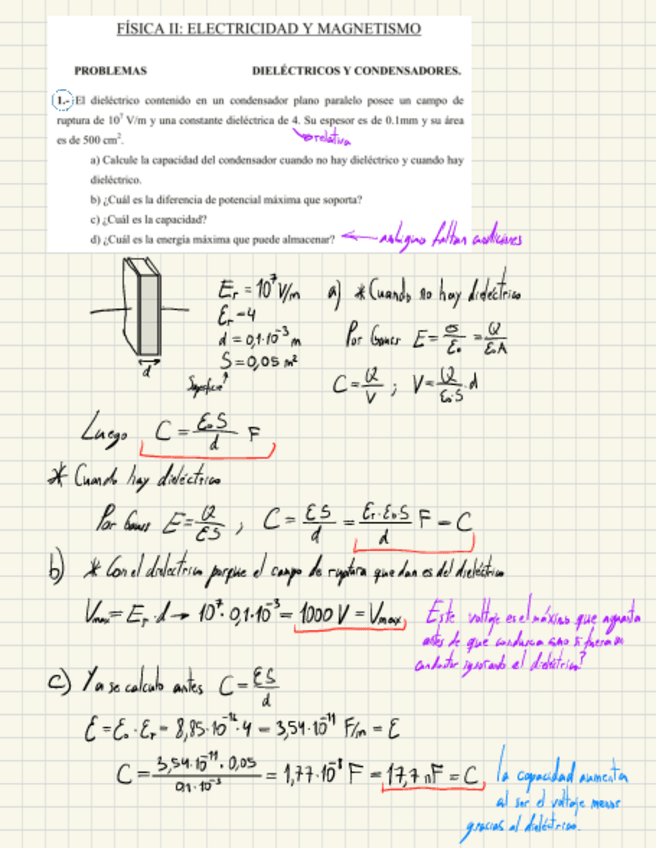 FÍSICA II: ELECTRICIDAD Y MAGNETISMO
PROBLEMAS DIELÉCTRICOS Y CONDENSADORES.
1.- El dieléctrico contenido en un condensador plano paralelo posee un campo de
ruptura de 10⁷ V/m y una constante dieléctrica de 4. Su espesor es de 0.1mm y su área
es de 500 cm².
relativa
a) Calcule la capacidad del condensador cuando no hay dieléctrico y cuando hay
dieléctrico.
b) ¿Cuál es la diferencia de potencial máxima que soporta?
c) ¿Cuál es la capacidad?
d) ¿Cuál es la energía máxima que puede almacenar? ← ambiguo faltan condiciones
d
Er = 10⁷ V/m
εr = 4
d = 0,1·10⁻³ m
S = 0,05 m²
Superficie
a) * Cuando no hay dieléctrico
Por Gauss E = σ/ε₀ = Q/ε₀A
C = Q/V ; V = Q/ε₀·S · d
Luego C = ε₀S/d F
* Cuando hay dieléctrico
Por Gauss E = Q/εS , C = εS/d = εr·ε₀S/d F = C
b) * Con el dieléctrico porque el campo de ruptura que dan es del dieléctrico
Vmax = Er·d → 10⁷·0,1·10⁻³ = 1000 V = Vmax,
Este voltaje es el máximo que aguanta
antes de que conduzca como si fuera un
conductor ignorando el dieléctrico?
c) Ya se calculo antes C = εS/d
ε = ε₀·εr = 8,85·10⁻¹²·4 = 3,54·10⁻¹¹ F/m = ε
C = 3,54·10⁻¹¹·0,05/0,1·10⁻³ = 1,77·10⁻⁸ F = 17,7 nF = C,
la capacidad aumenta
al ser el voltaje menor
gracias al dieléctrico.